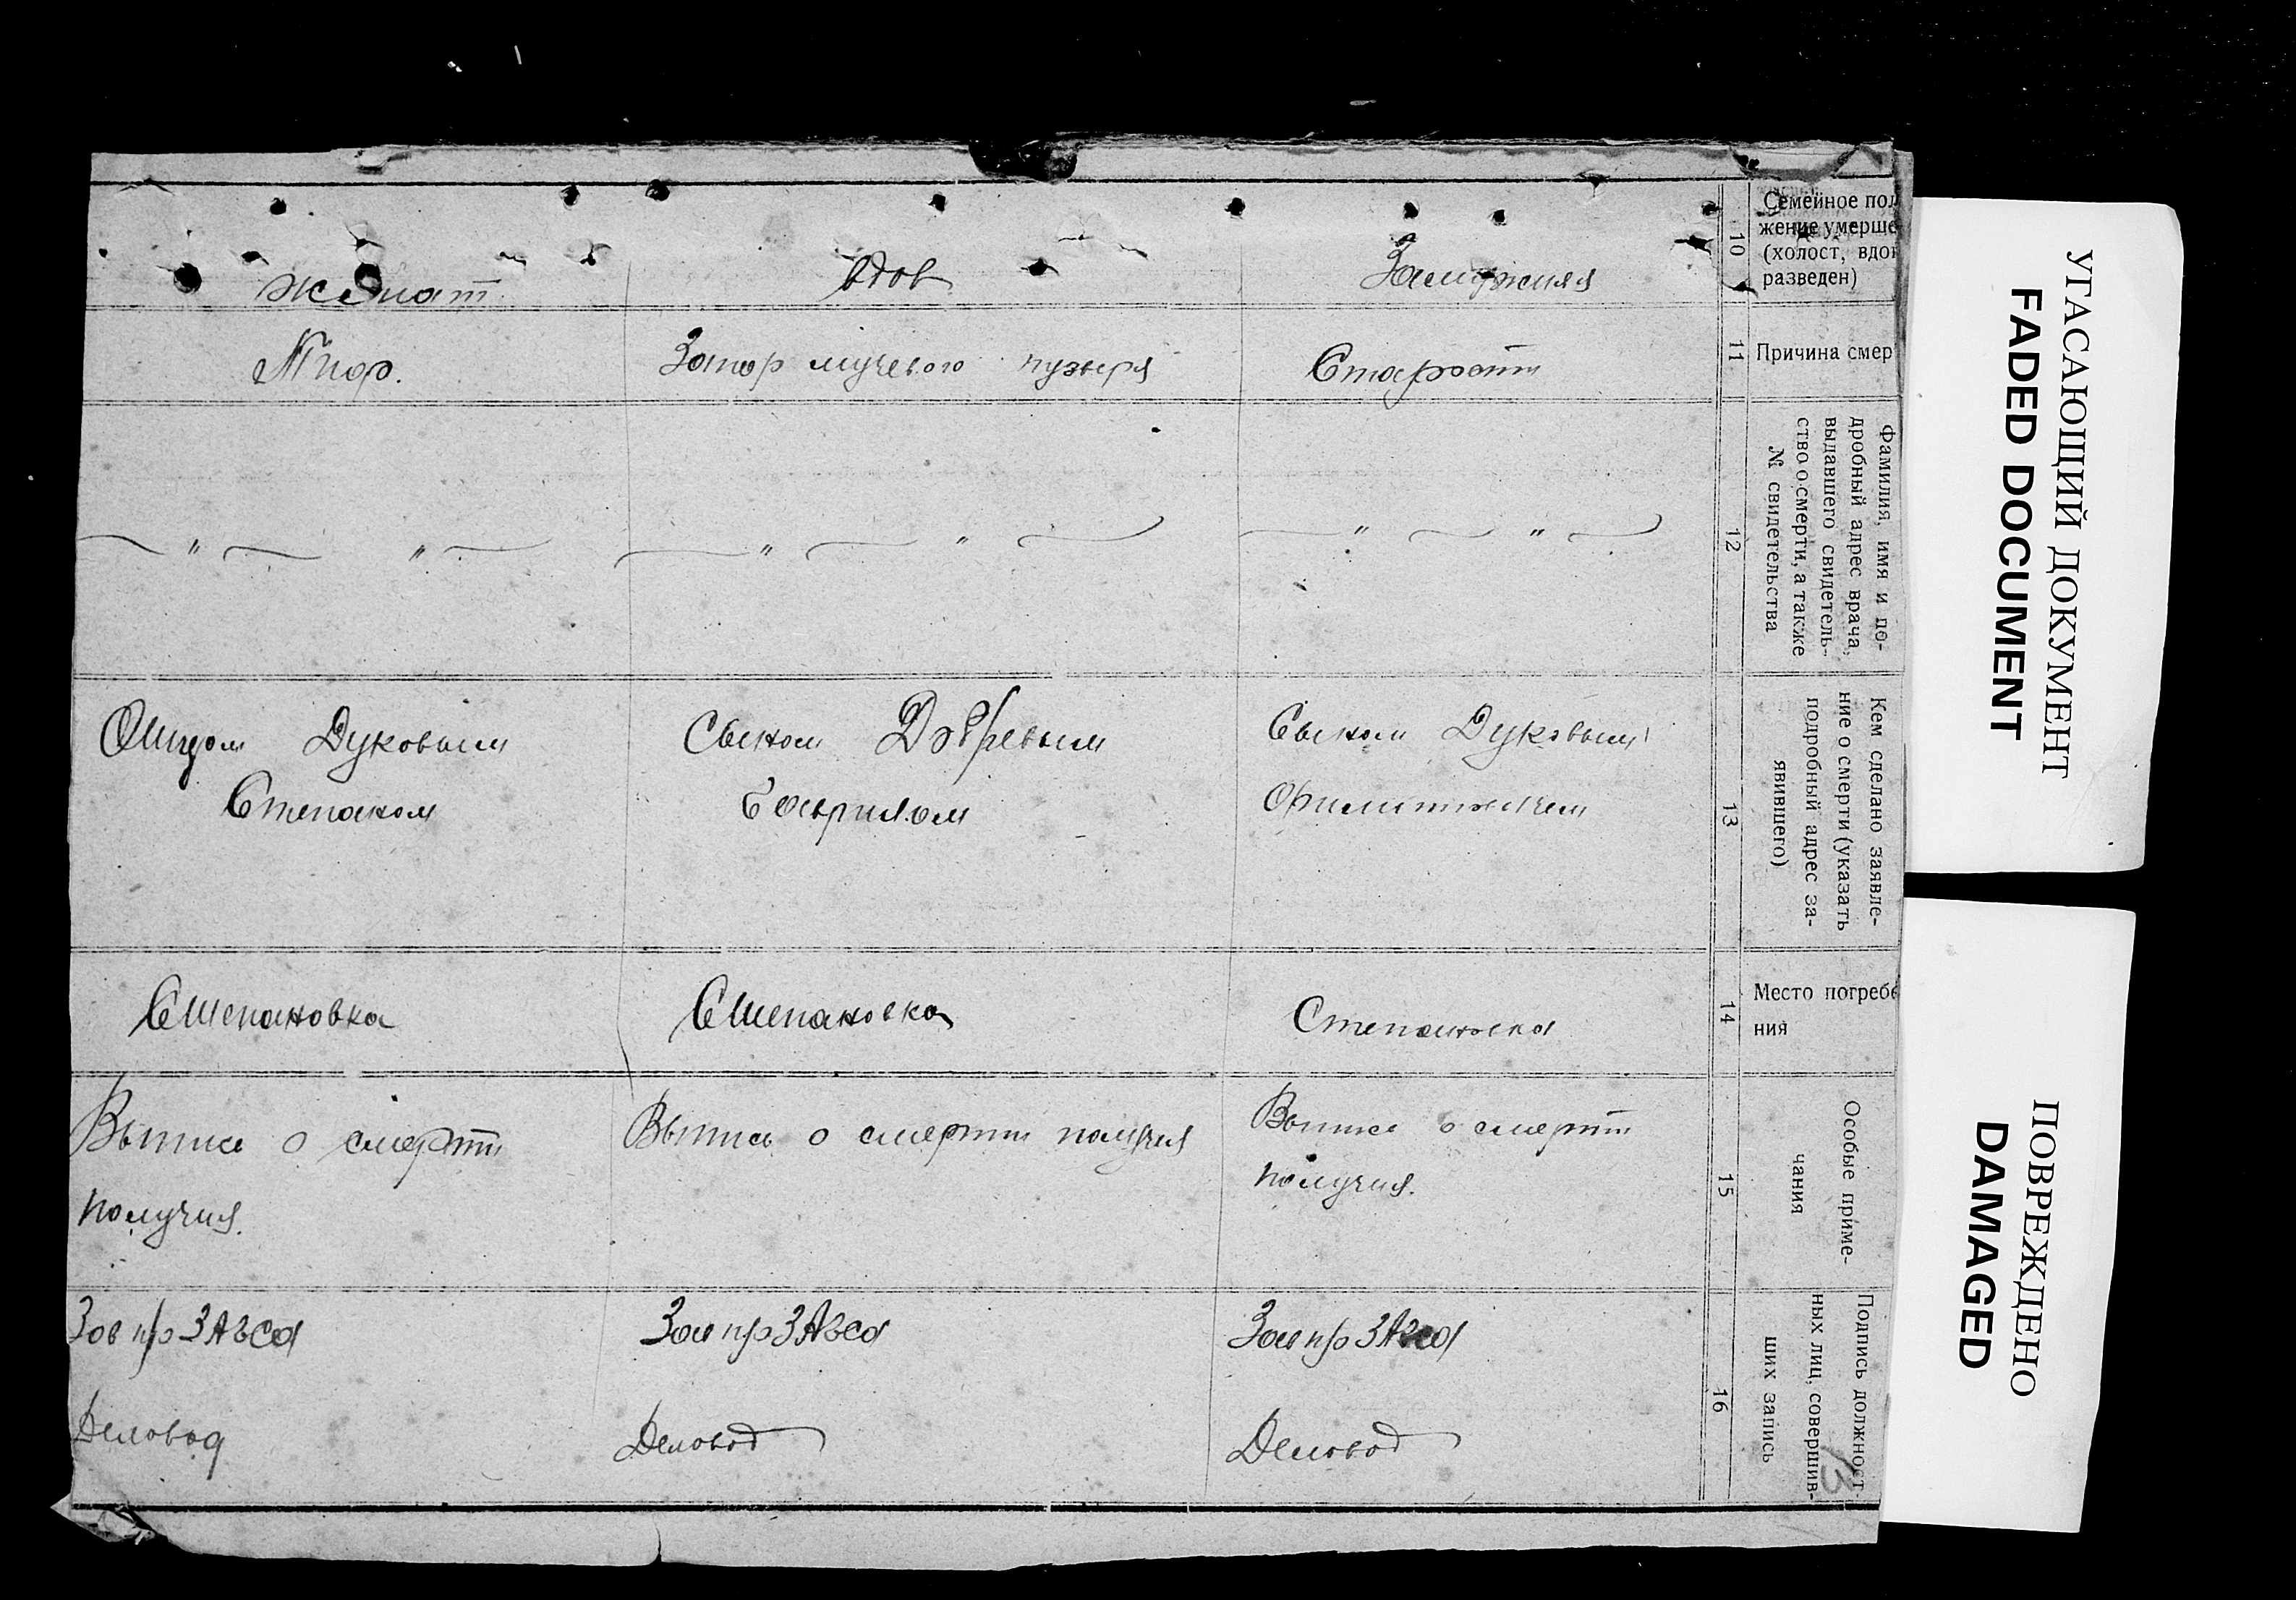 Семейное пол
жение умерше
(холост, вдов
разведен)
10
Замужняя
вдов
женат
Причина смер
11
Старости
Запор мучевого пузыря
Тиф.
Фамилия, имя и по-
дробный адрес врача,
выдавшего свидетель-
ство о смерти, а также
№ свидетельства
12
— " — " —
— " — " —
— " — " —
Кем сделано заявле-
ние о смерти (указать
подробный адрес за-
явившего)
13
Сыном Дуковым
Сыном Добревым
Гаврилом
Отцом Дуковым
Степаном
Место погребе
ния
14
Степановка
Степановка
Степановка
Особые приме-
чания
15
Выпись о смерти
получил.
Выпись о смерти получил
Выпись о смерти
получил.
Подпись должност-
ных лиц, совершив-
ших запись
16
Зав п/о ЗАГСа
Деловод
Зав п/о ЗАГСа
Деловод
Зав п/о ЗАГСа
Деловод
УГАСАЮЩИЙ ДОКУМЕНТ
FADED DOCUMENT
ПОВРЕЖДЕНО
DAMAGED